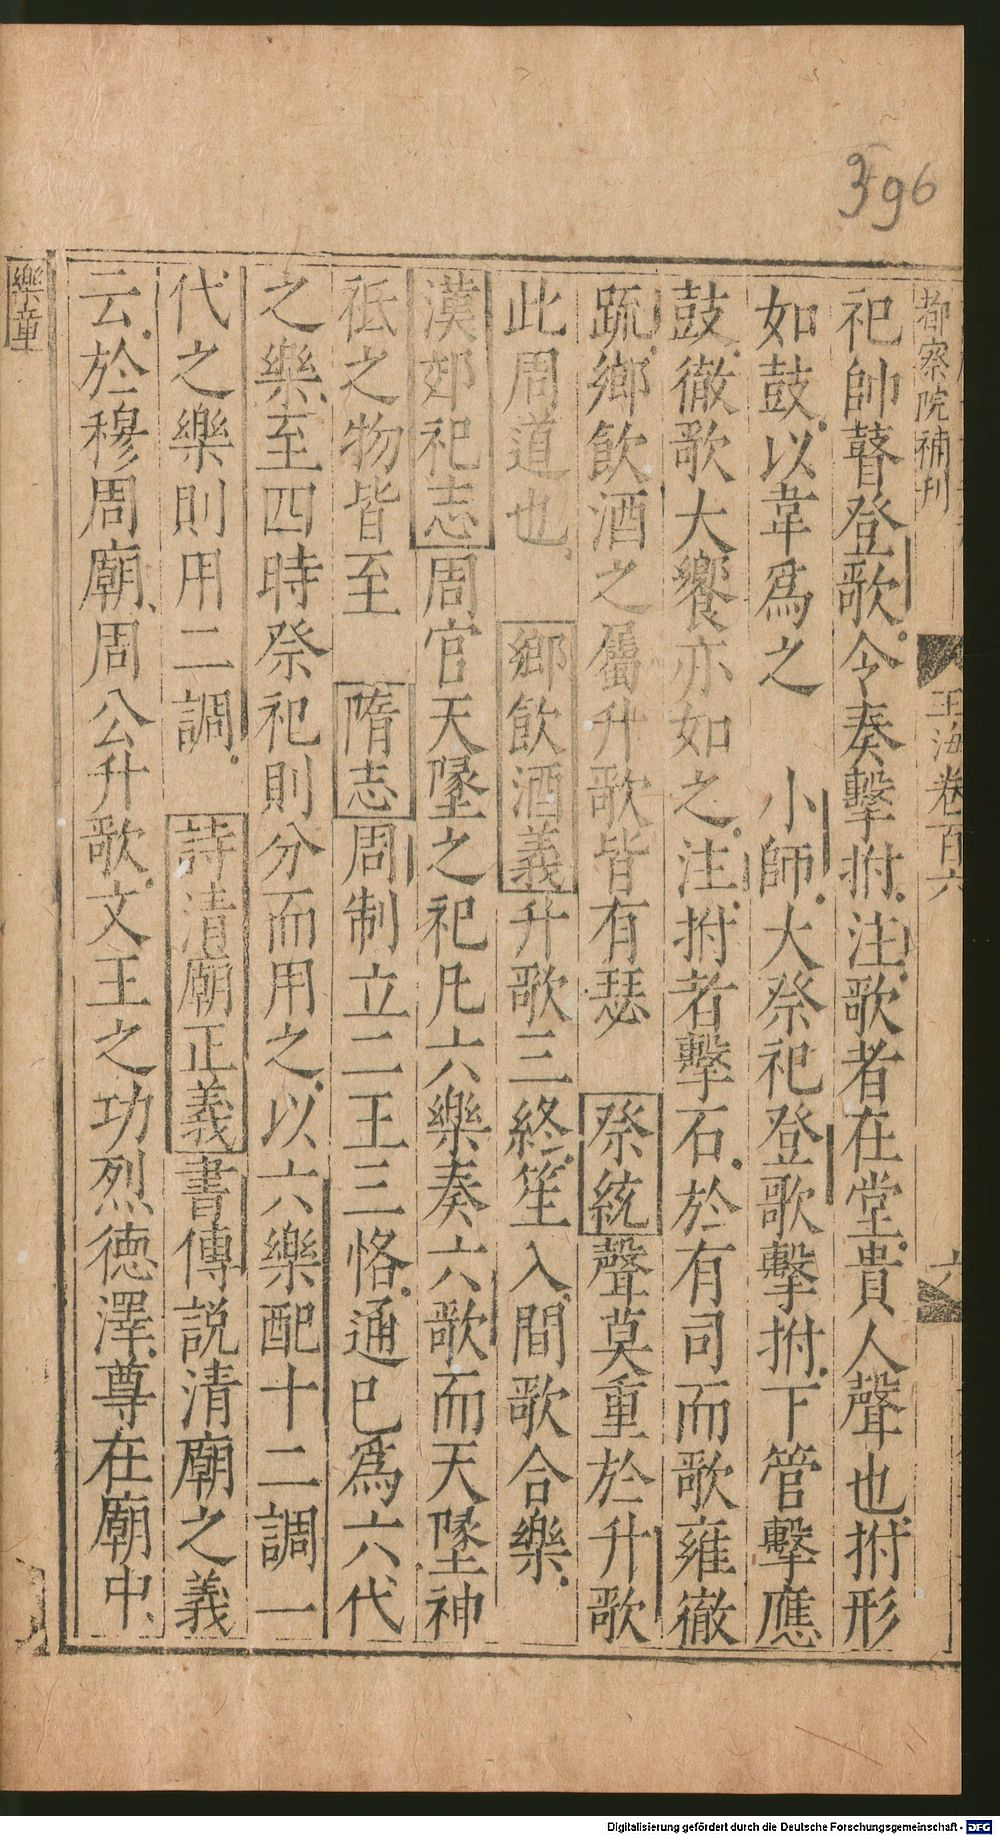 396
都察院補刊
玉海卷百六
祀帥瞽登歌令奏擊拊注歌者在堂貴人聲也拊形
如鼓以韋爲之 小師大祭祀登歌擊拊下管擊應
鼓徹歌大饗亦如之注拊者擊石於有司而歌雍徹
䟽鄉飲酒之屬升歌皆有瑟 祭統聲莫重於升歌
此周道也 鄉飲酒義升歌三終笙入間歌合樂
漢郊祀志周官天墬之祀凡六樂奏六歌而天墬神
祇之物皆至 隋志周制立二王三恪通已爲六代
之樂至四時祭祀則分而用之以六樂配十二調一
代之樂則用二調 詩清廟正義書傳説清廟之義
云於穆周廟周公升歌文王之功烈德澤尊在廟中
樂章
Digitalisierung gefördert durch die Deutsche Forschungsgemeinschaft - DFG